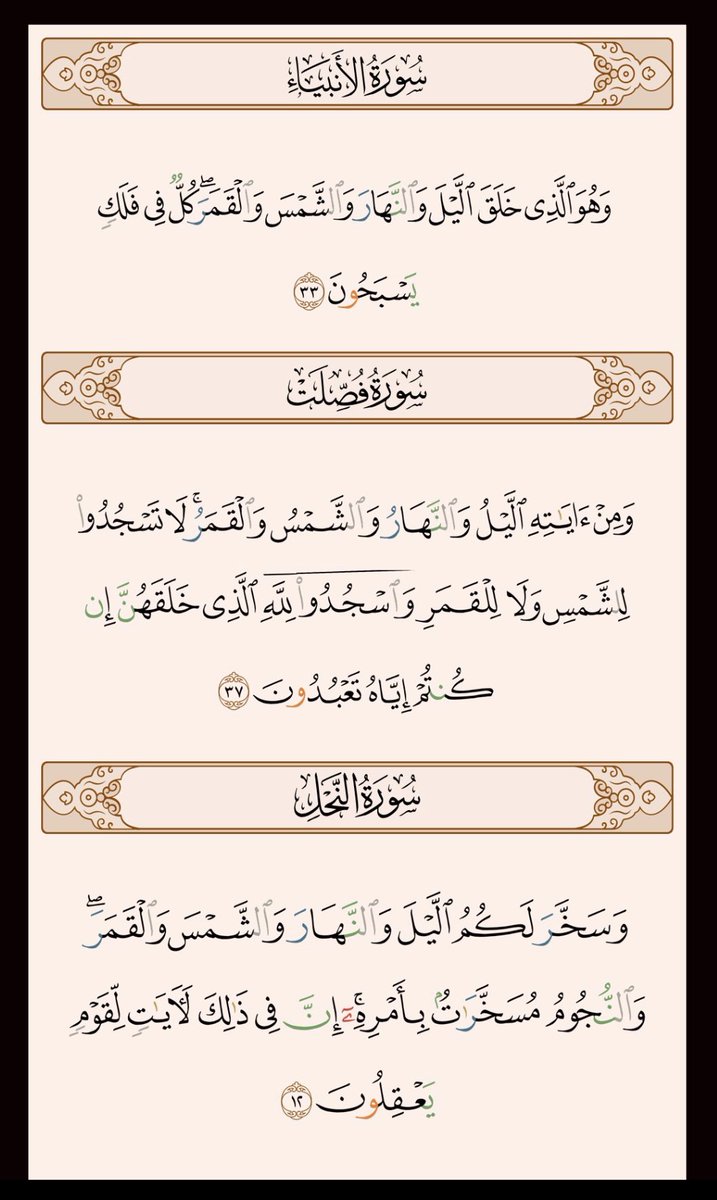 سُورَةُ الأَنبِيَاءِ
وَهُوَ ٱلَّذِى خَلَقَ ٱلَّيْلَ وَٱلنَّهَارَ وَٱلشَّمْسَ وَٱلْقَمَرَ ۖ كُلٌّ فِى فَلَكٍ
يَسْبَحُونَ ٣٣
سُورَةُ فُصِّلَتْ
وَمِنْ ءَايَـٰتِهِ ٱلَّيْلُ وَٱلنَّهَارُ وَٱلشَّمْسُ وَٱلْقَمَرُ ۚ لَا تَسْجُدُوا۟
لِلشَّمْسِ وَلَا لِلْقَمَرِ وَٱسْجُدُوا۟ لِلَّهِ ٱلَّذِى خَلَقَهُنَّ إِن
كُنتُمْ إِيَّاهُ تَعْبُدُونَ ٣٧
سُورَةُ النَّحْلِ
وَسَخَّرَ لَكُمُ ٱلَّيْلَ وَٱلنَّهَارَ وَٱلشَّمْسَ وَٱلْقَمَرَ ۖ
وَٱلنُّجُومُ مُسَخَّرَٰتٌۢ بِأَمْرِهِۦٓ ۚ إِنَّ فِى ذَٰلِكَ لَـَٔايَـٰتٍ لِّقَوْمٍ
يَعْقِلُونَ ١٢